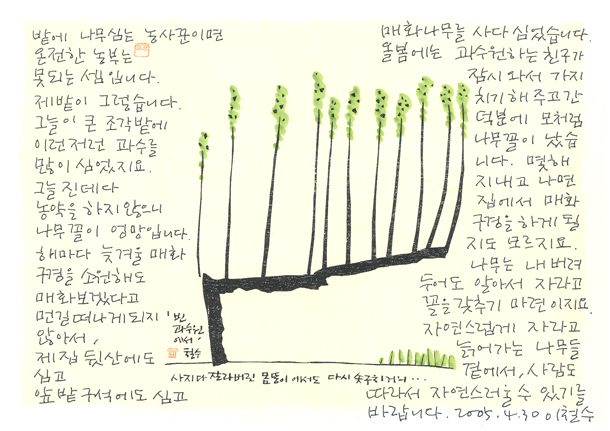 밭에 나무심는 농사꾼이면
온전한 농부는
못되는 셈입니다.
제밭이 그렇습니다.
그늘이 큰 조각밭에
이런저런 과수를
많이 심었지요.
그늘 진데다
농약을 하지않으니
나무꼴이 엉망입니다.
해마다 늦겨울 매화
구경을 소원해도
매화보겠다고
먼길떠나게되지
않아서,
제집 뒷산에도
심고
앞밭 구석에도 심고
매화나무를 사다 심었습니다.
올봄에는 과수원하는친구가
잠시 와서 가지
치기해 주고간
덕분에 모처럼
나무꼴이 났습
니다. 몇해
지내고 나면
집에서 매화
구경을하게 될
지도 모르지요.
나무는 내버려
두어도 알아서 자라고
꼴을갖추기 마련이지요.
자연스럽게 자라고
늙어가는 나무들
곁에서, 사람도
따라서 자연스러울수 있기를
바랍니다. 2005.4.30 이철수
'빈
과수원
에서'
철수
사지다잘라버린 몸뚱이에서도 다시솟구치거니...